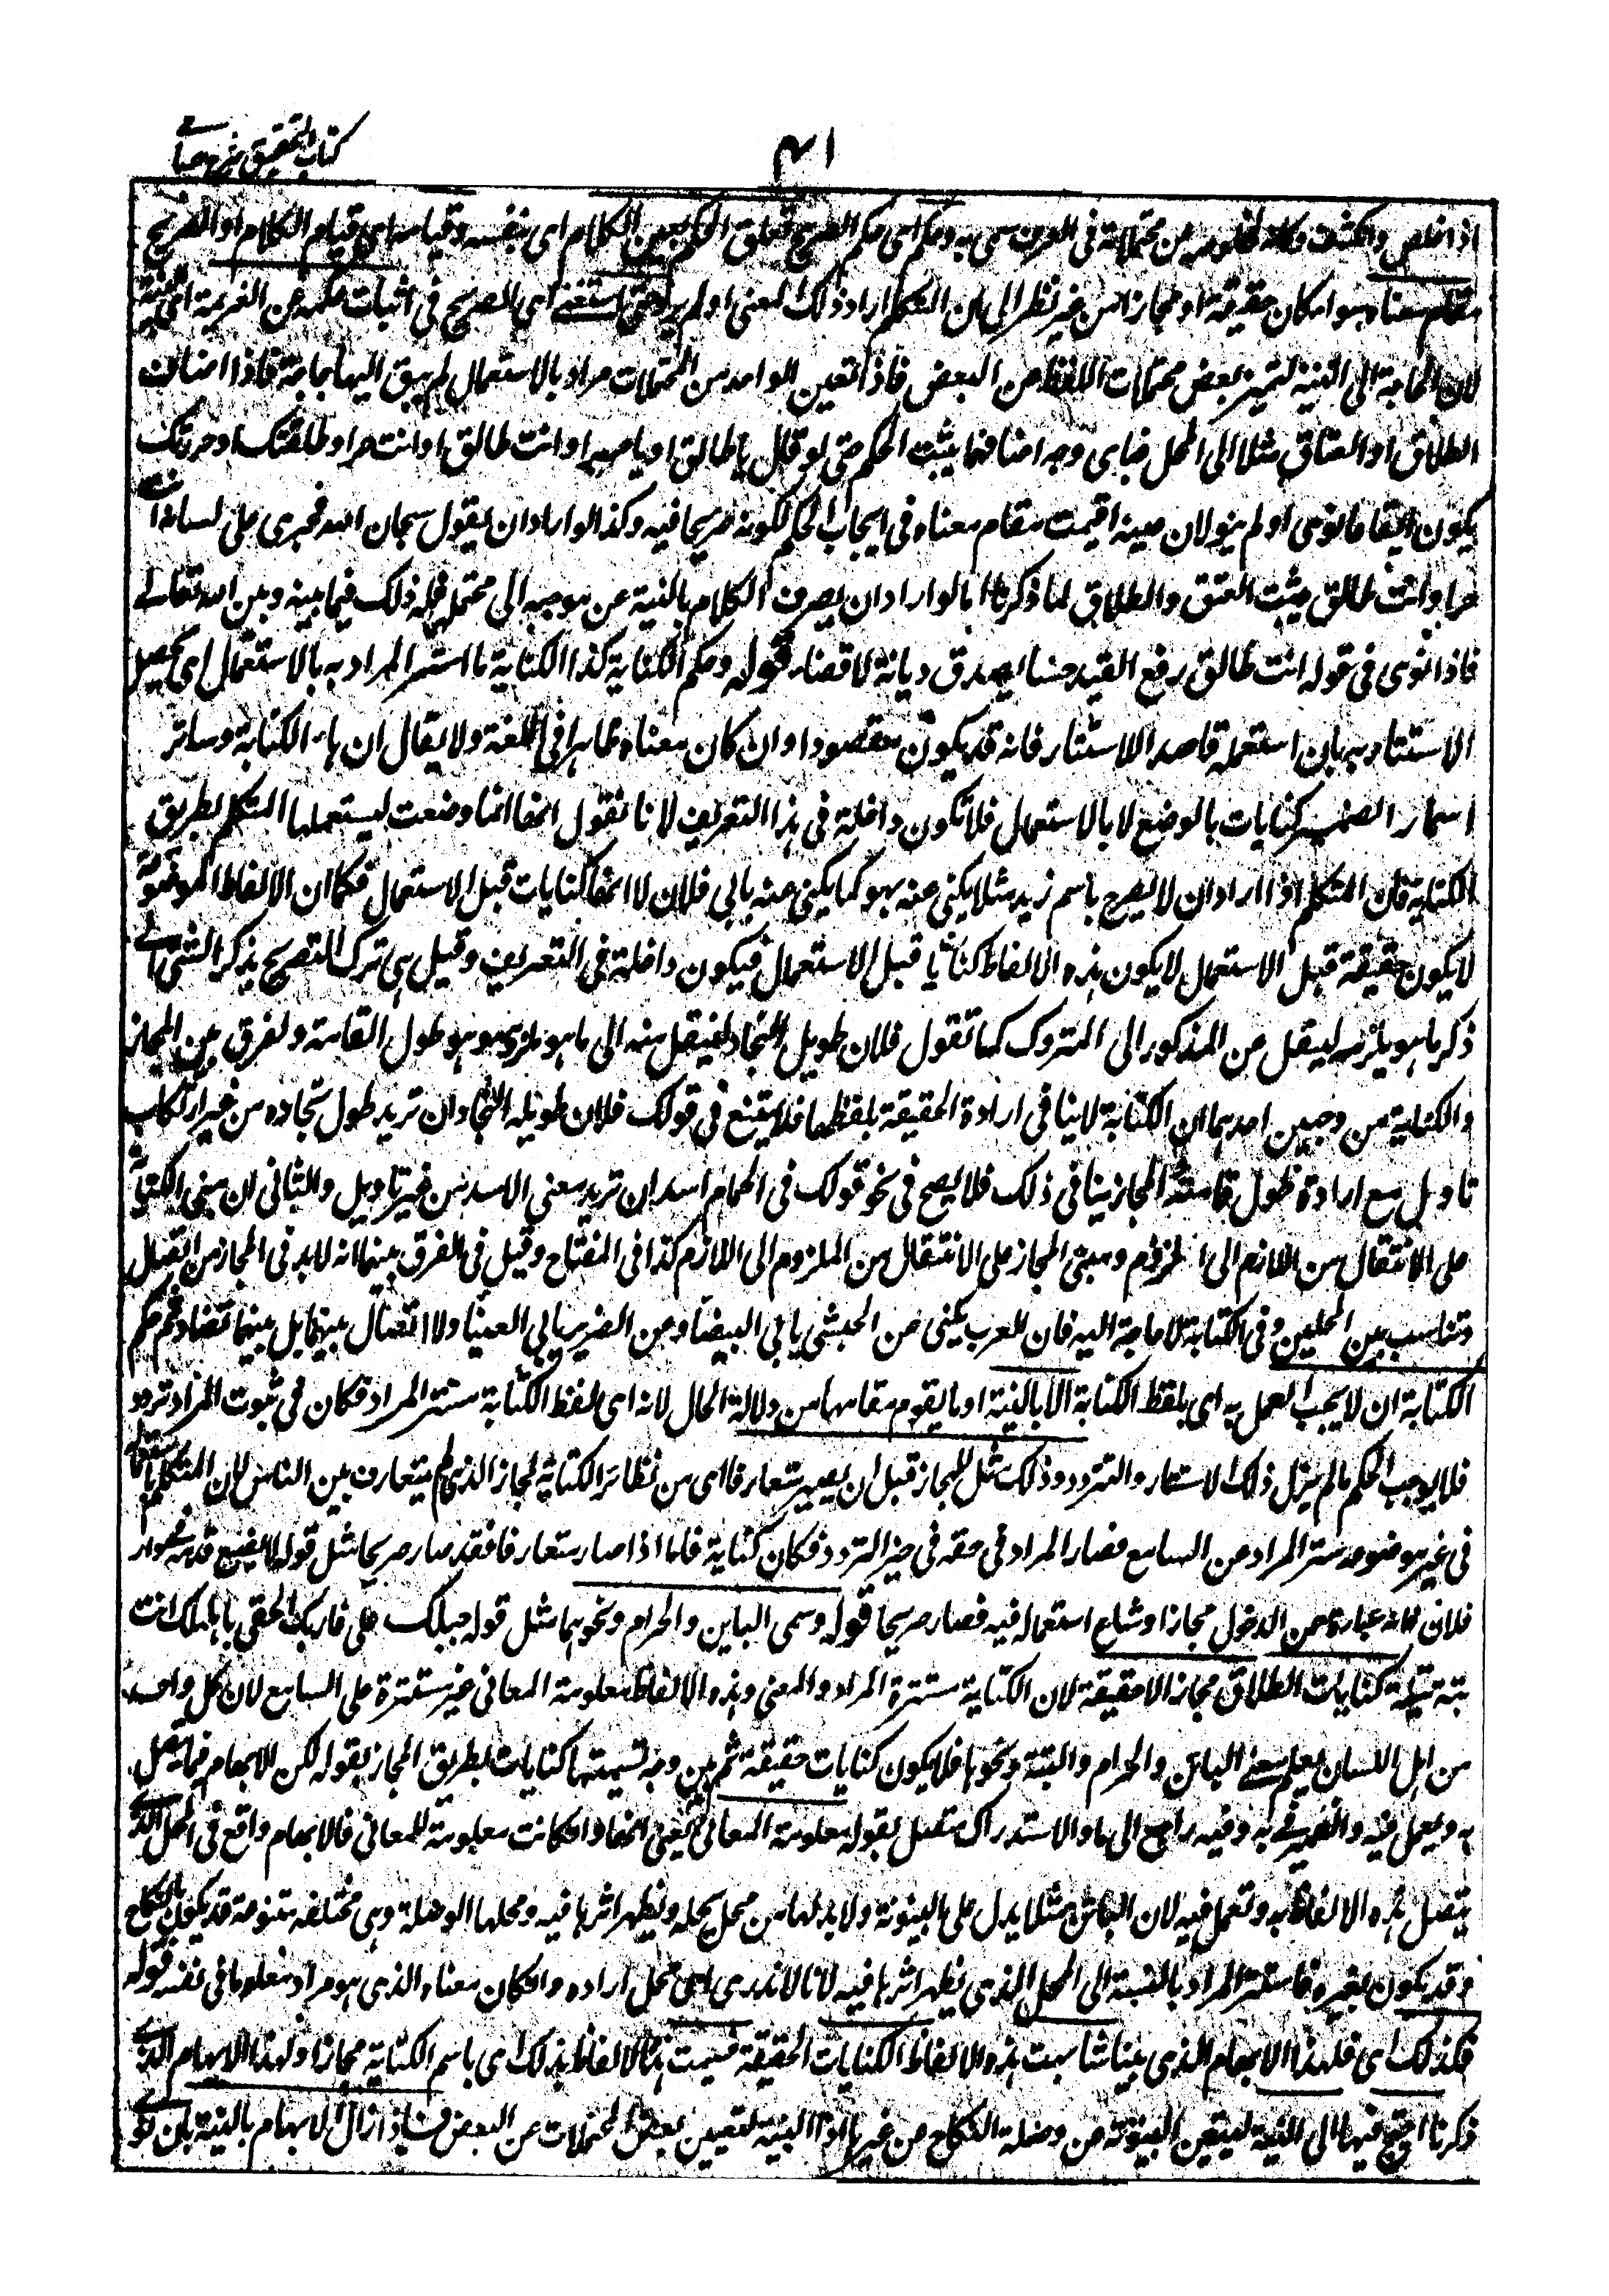 كتاب التحقيق شرح حسامى
۴۱
اذا خلص وانكشف وكانه لخلوصه من محتملاته فى العرف سمى به وحكمه اى حكم الصريح تعلق الحكم بعين الكلام اى بنفسه وقيامه اى قيام الكلام او الصريح
مقام معناه سواء كان حقيقة او مجازا من غير نظر الى ان المتكلم اراد ذلك المعنى او لم يرد حتى استغنى اى الصريح فى اثبات حكمه عن العزيمة اى النية
لان الحاجة الى النية لتميز بعض محتملات اللفظ من البعض فاذا تعين الواحد من المحتملات مرادا بالاستعمال لم يبق اليها حاجة فاذا اضاف
الطلاق او العتاق مثلا الى المحل فباى وجه اضافهما يثبت الحكم حتى لو قال يا طالق او يا حر او انت طالق او انت حر او طلقتك او حررتك
يكون ايقاعا نوى او لم ينو لان عينه اقيمت مقام معناه فى ايجاب الحكم لكونه صريحا فيه وكذا لو اراد ان يقول سبحان الله فجرى على لسانه انت
حر او انت طالق يثبت العتق والطلاق لما ذكرنا اما لو اراد ان يصرف الكلام بالنية عن موجبه الى محتمله فله ذلك فيما بينه وبين الله تعالى
فاذا نوى فى قوله انت طالق رفع القيد حسا يصدق ديانة لا قضاء قوله وحكم الكناية كذا الكناية ما استتر المراد به بالاستعمال اى يحصل
الاستتار به بان استعمله قاصدا للاستتار فانه قد يكون مقصودا وان كان معناه ظاهرا فى اللغة ولا يقال ان هاء الكناية وسائر
اسماء الضمير كنايات بالوضع لا بالاستعمال فلا تكون داخلة فى هذا التعريف لانا نقول انها انما وضعت ليستعملها المتكلم بطريق
الكناية فان المتكلم اذا اراد ان لا يصرح باسم زيد مثلا يكنى عنه بهو كما يكنى عنه بابى فلان لا انها كنايات قبل الاستعمال فكما ان الالفاظ الموضوعة
لا يكون حقيقة قبل الاستعمال لا يكون هذه الالفاظ كنايا قبل الاستعمال فيكون داخلة فى التعريف وقيل هى ترك التصريح بذكر الشئ الى
ذكر ما هو يلزمه لينقل من المذكور الى المتروك كما تقول فلان طويل النجاد لينتقل منه الى ما هو ملزومه وهو طول القامة والفرق بين المجاز
والكناية من وجهين احدهما ان الكناية لا ينافى ارادة الحقيقة بلفظها فلا يمتنع فى قولك فلان طويل النجاد ان تريد طول نجاده من غير ارتكاب
تاويل مع ارادة طول قامته والمجاز ينافى ذلك فلا يصح فى نحو قولك فى الحمام اسد ان تريد معنى الاسد من غير تاويل والثانى ان مبنى الكناية
على الانتقال من اللازم الى الملزوم ومبنى المجاز على الانتقال من الملزوم الى اللازم كذا فى المفتاح وقيل فى الفرق بينهما انه لابد فى المجاز من اتصال
وتناسب بين المحلين وفى الكناية لا حاجة اليه فان العرب يكنى عن الحبشى بابى البيضاء وعن الضرير بابى العيناء ولا اتصال بينهما بل بينهما تضاد وحكم
الكناية ان لا يجب العمل به اى بلفظ الكناية الا بالنية او ما يقوم مقامها من دلالة الحال لانه اى لفظ الكناية مستتر المراد فكان فى ثبوت المراد تردد
فلا يوجب الحكم ما لم يزل ذلك الاستتار والتردد وذلك مثل المجاز قبل ان يصير متعارفا اى من نظائر الكناية المجاز الذى لم يتعارف بين الناس لان المتكلم باستعماله
فى غير موضوعه ستر المراد من السامع فصار المراد فى حقه فى حيز التردد فكان كناية فاما اذا صار متعارفا فقد صار صريحا مثل قوله لا يضع قدمه فى دار
فلان فانه عبارة عن الدخول مجازا وشاع استعماله فيه فصار صريحا قوله وسمى الباين والحرام ونحوهما مثل قوله حبلك على غاربك الحقى باهلك انت
بتة بتلة كنايات الطلاق مجازا لا حقيقة لان الكناية مستترة المراد والمعنى وهذه الالفاظ معلومة المعانى غير مستترة على السامع لان كل واحد
من اهل اللسان يعلم معنى البائن والحرام والبتة ونحوها فلا يكون كنايات حقيقة ثم بين وجه تسميتها كنايات بطريق المجاز بقوله لكن الابهام فيما يتصل
به ويعمل فيه والضمير فى به وفيه راجع الى ما والاستدراك متصل بقوله معلومة المعانى يعنى انها وان كانت معلومة المعانى فالابهام واقع فى المحل الذى
يتصل هذه الالفاظ به وتعمل فيه لان البائن مثلا يدل على البينونة ولا بد لها من محل يحله ويظهر اثرها فيه ومحلها الوصلة وهى مختلفة متنوعة قد يكون بالنكاح
وقد يكون بغيره فاستتر المراد بالنسبة الى المحل الذى يظهر اثرها فيه لانا لا ندرى اى محل اراده وان كان معناه الذى هو مراد معلوما فى نفسه قوله
فلذلك اى فلهذا الابهام الذى بينا شابهت هذه الالفاظ الكنايات الحقيقة فسميت هذه الالفاظ بذلك اى باسم الكناية مجازا ولهذا الابهام الذى
ذكرنا احتيج فيها الى النية ليتعين البينونة عن وصلة النكاح من غيرها لان النية لتعيين بعض المحتملات من البعض فاذا زال الابهام بالنية بان نوى